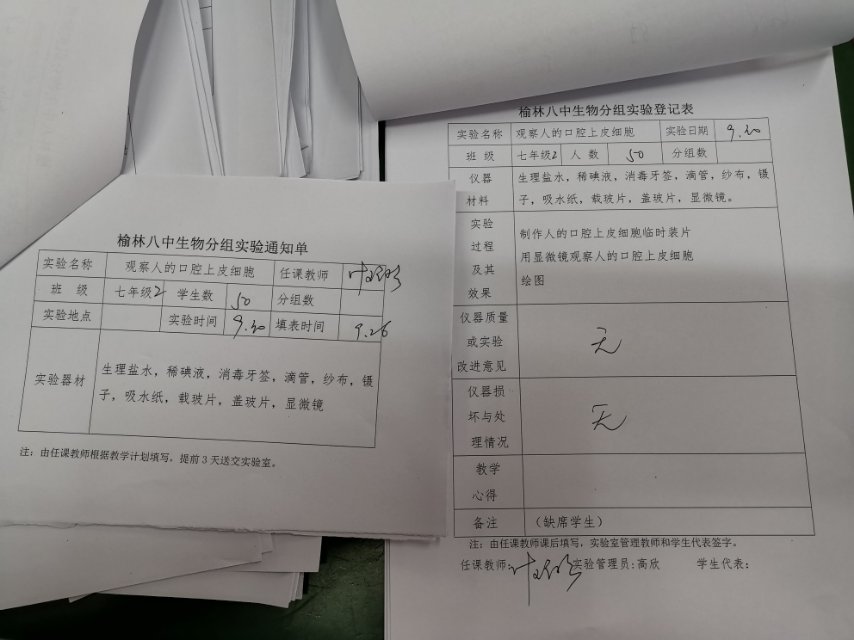 榆林八中生物分组实验通知单
实验名称 观察人的口腔上皮细胞 任课教师
班 级 七年级2 学生数 50 分组数
实验地点 实验时间 9.30 填表时间 9.26
实验器材 生理盐水，稀碘液，消毒牙签，滴管，纱布，镊
子，吸水纸，载玻片，盖玻片，显微镜
注：由任课教师根据教学计划填写，提前3天送交实验室。
榆林八中生物分组实验登记表
实验名称 观察人的口腔上皮细胞 实验日期 9.30
班 级 七年级2 人 数 50 分组数
仪器 生理盐水，稀碘液，消毒牙签，滴管，纱布，镊
材料 子，吸水纸，载玻片，盖玻片，显微镜。
实验
过程
及其
效果
制作人的口腔上皮细胞临时装片
用显微镜观察人的口腔上皮细胞
绘图
仪器质量
或实验
改进意见
无
仪器损
坏与处
理情况
无
教学
心得
备注 （缺席学生）
注：由任课教师课后填写，实验室管理教师和学生代表签字。
任课教师: 实验管理员:高欣 学生代表: